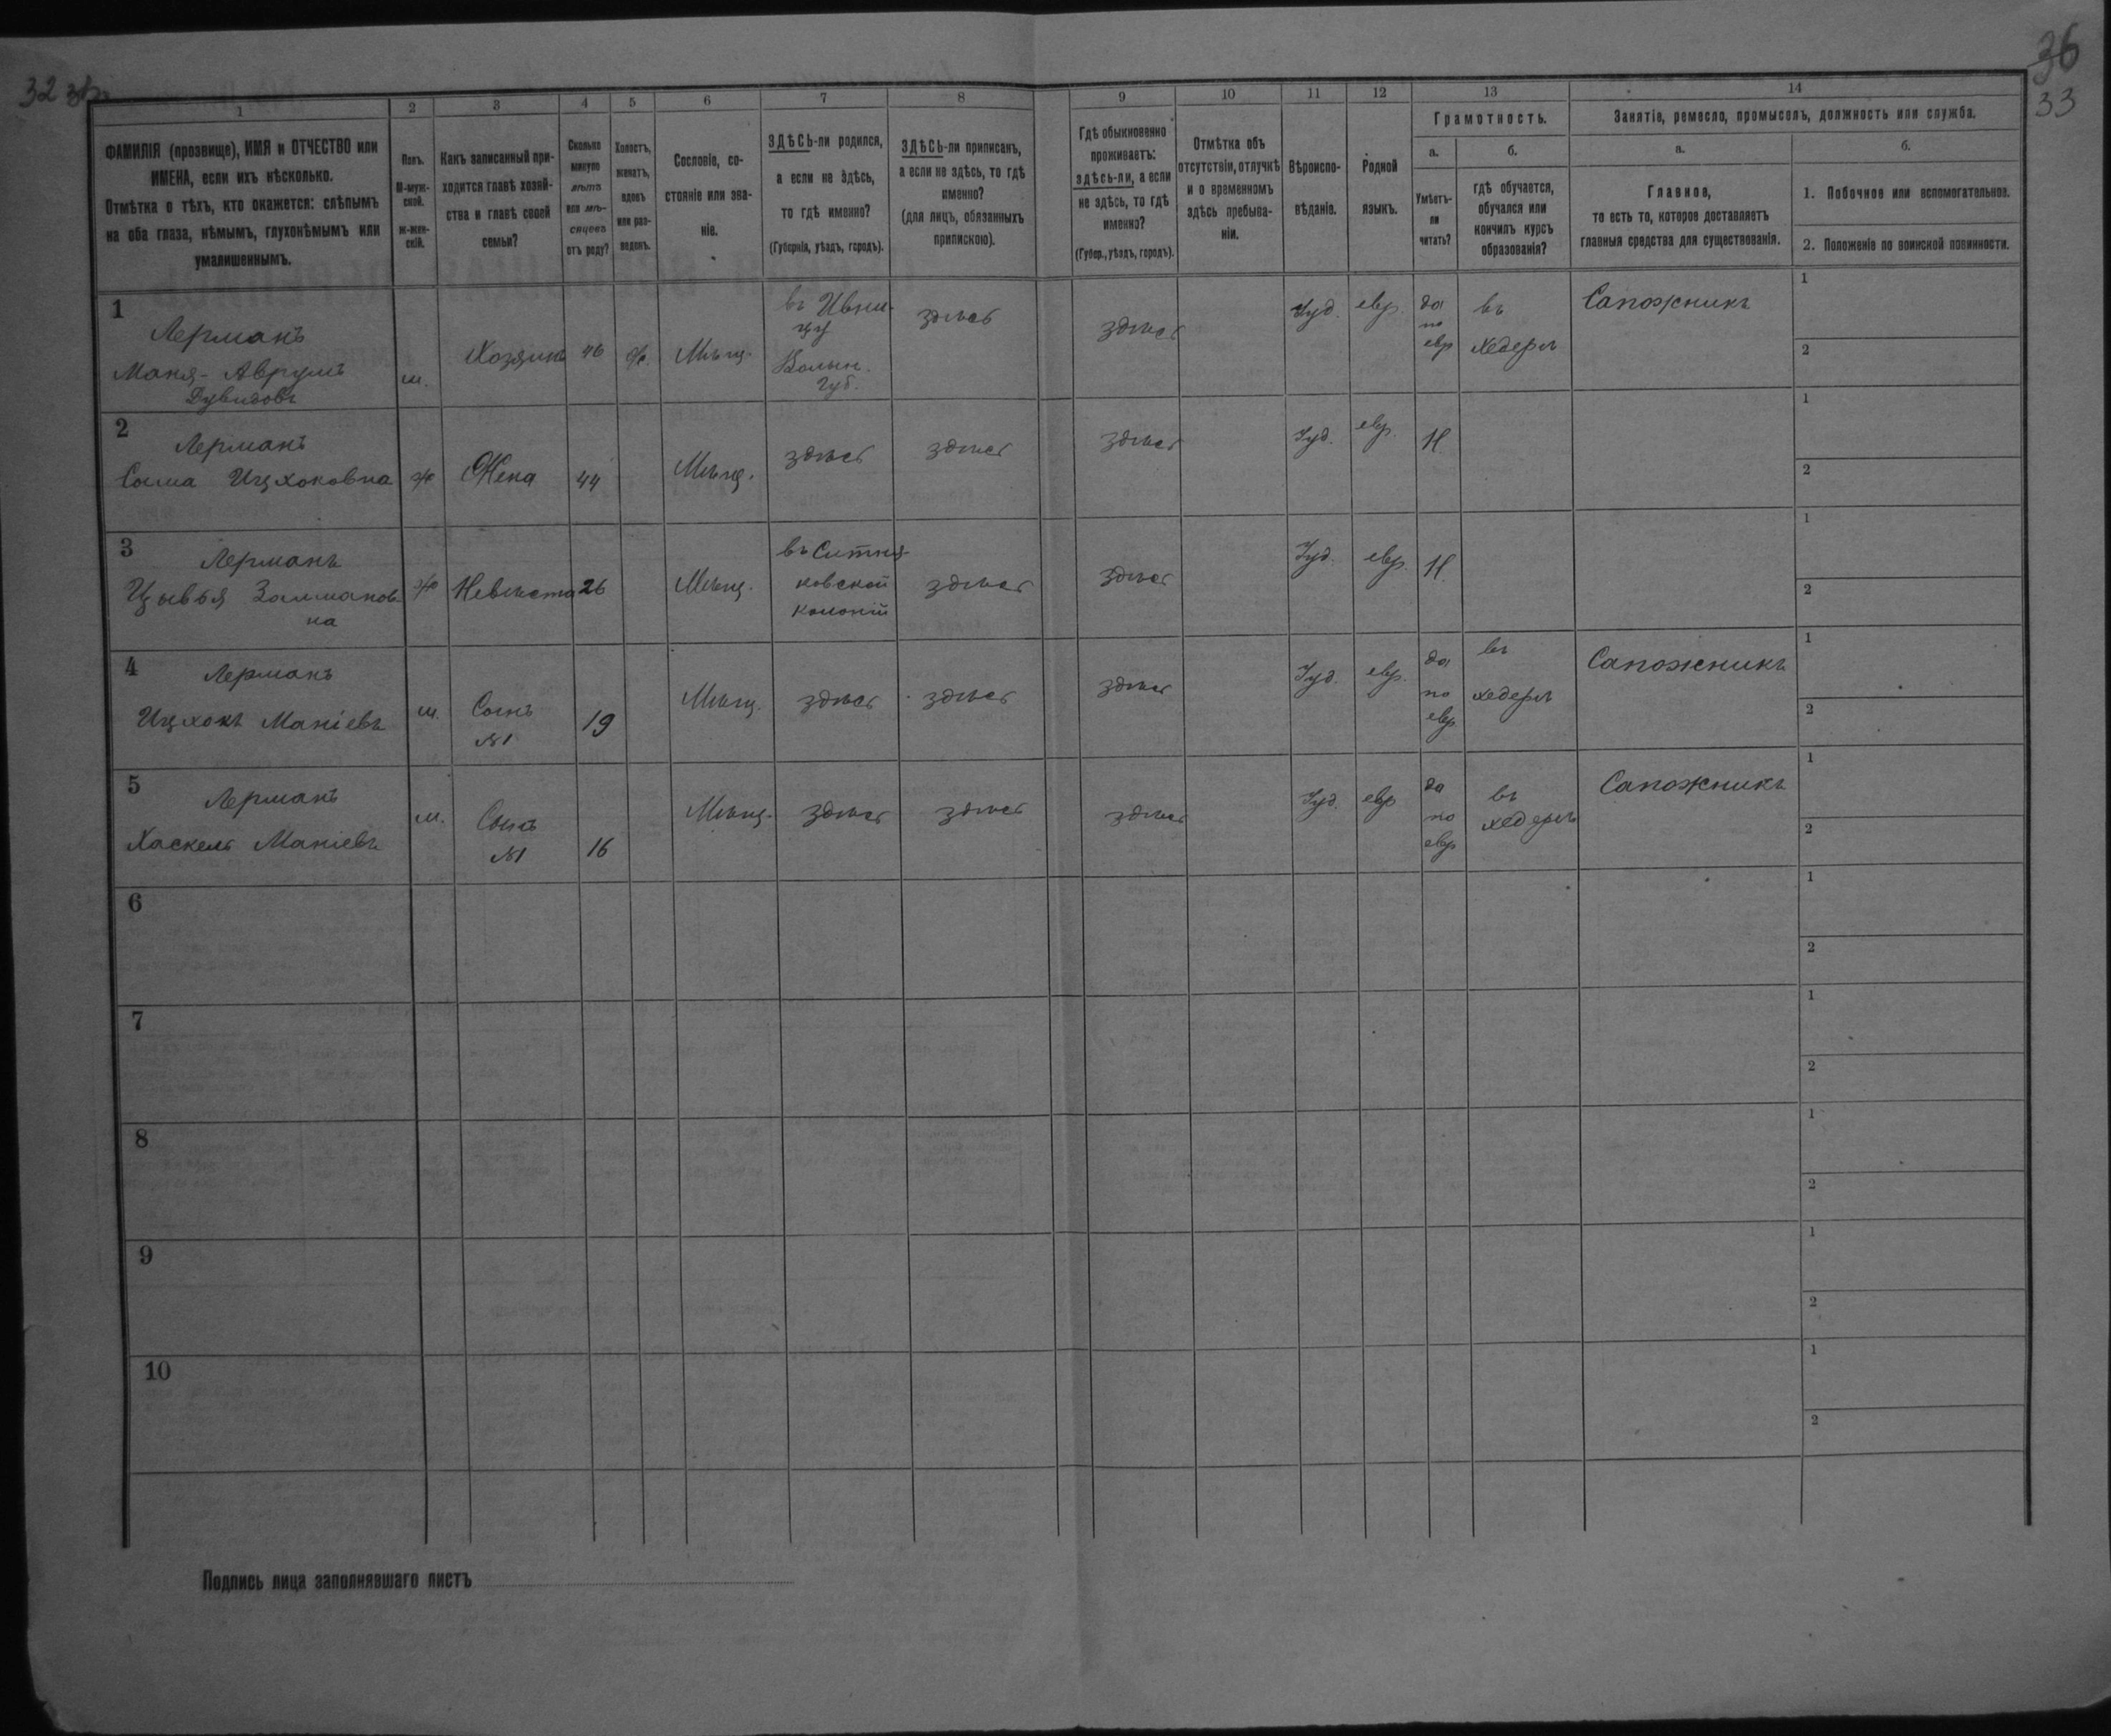 32
36
33
1 2 3 4 5 6 7 8 9 10 11 12 13 14
ФАМИЛІЯ (прозвище), ИМЯ и ОТЧЕСТВО или
ИМЕНА, если ихъ нѣсколько.
Отмѣтка о тѣхъ, кто окажется: слѣпымъ
на оба глаза, нѣмымъ, глухонѣмымъ или
умалишеннымъ.
Полъ.
М-муж-
ской.
ж-жен-
скій.
Какъ записанный при-
ходится главѣ хозяй-
ства и главѣ своей
семьи?
Сколько
минуло
лѣтъ
или мѣ-
сяцевъ
отъ роду?
Холостъ,
женатъ,
вдовъ
или раз-
веденъ.
Сословіе, со-
стояніе или зва-
ніе.
ЗДѢСЬ-ли родился,
а если не здѣсь,
то гдѣ именно?
(Губернія, уѣздъ, городъ).
ЗДѢСЬ-ли приписанъ,
а если не здѣсь, то гдѣ
именно?
(для лицъ, обязанныхъ
припискою).
Гдѣ обыкновенно
проживаетъ:
здѣсь-ли, а если
не здѣсь, то гдѣ
именно?
(Губер., уѣздъ, городъ).
Отмѣтка объ
отсутствіи, отлучкѣ
и о временномъ
здѣсь пребыва-
ніи.
Вѣроиспо-
вѣданіе.
Родной
языкъ.
Грамотность.
а.
Умѣетъ-
ли
читать?
б.
гдѣ обучается,
обучался или
кончилъ курсъ
образованія?
Занятіе, ремесло, промыселъ, должность или служба.
а.
Главное,
то есть то, которое доставляетъ
главныя средства для существованія.
б.
1. Побочное или вспомогательное.
2. Положеніе по воинской повинности.
1
Лерманъ
Маня-Аврумъ
Дувидовъ
м.
Хозяинъ
46
ж.
Мѣщ.
въ Ивни-
цу
Волын.
губ.
здѣсь
здѣсь
Іуд.
евр.
да
по
евр
въ
хедерѣ
Сапожникъ
1
2
2
Лерманъ
Сыма Ицхоковна
ж
Жена
44
Мѣщ.
здѣсь
здѣсь
здѣсь
Іуд.
евр.
Н.
1
2
3
Лерманъ
Цывья Залманов-
на
ж
Невѣста
26
Мѣщ.
въ Ситня-
ковской
колоніи
здѣсь
здѣсь
Іуд.
евр.
Н.
1
2
4
Лерманъ
Ицхокъ Маніевъ
м.
Сынъ
№1
19
Мѣщ.
здѣсь
здѣсь
здѣсь
Іуд.
евр.
да
по
евр
въ
хедерѣ
Сапожникъ
1
2
5
Лерманъ
Хаскель Маніевъ
м.
Сынъ
№1
16
Мѣщ.
здѣсь
здѣсь
здѣсь
Іуд.
евр
да
по
евр
въ
хедерѣ
Сапожникъ
1
2
6
1
2
7
1
2
8
1
2
9
1
2
10
1
2
Подпись лица заполнявшаго листъ